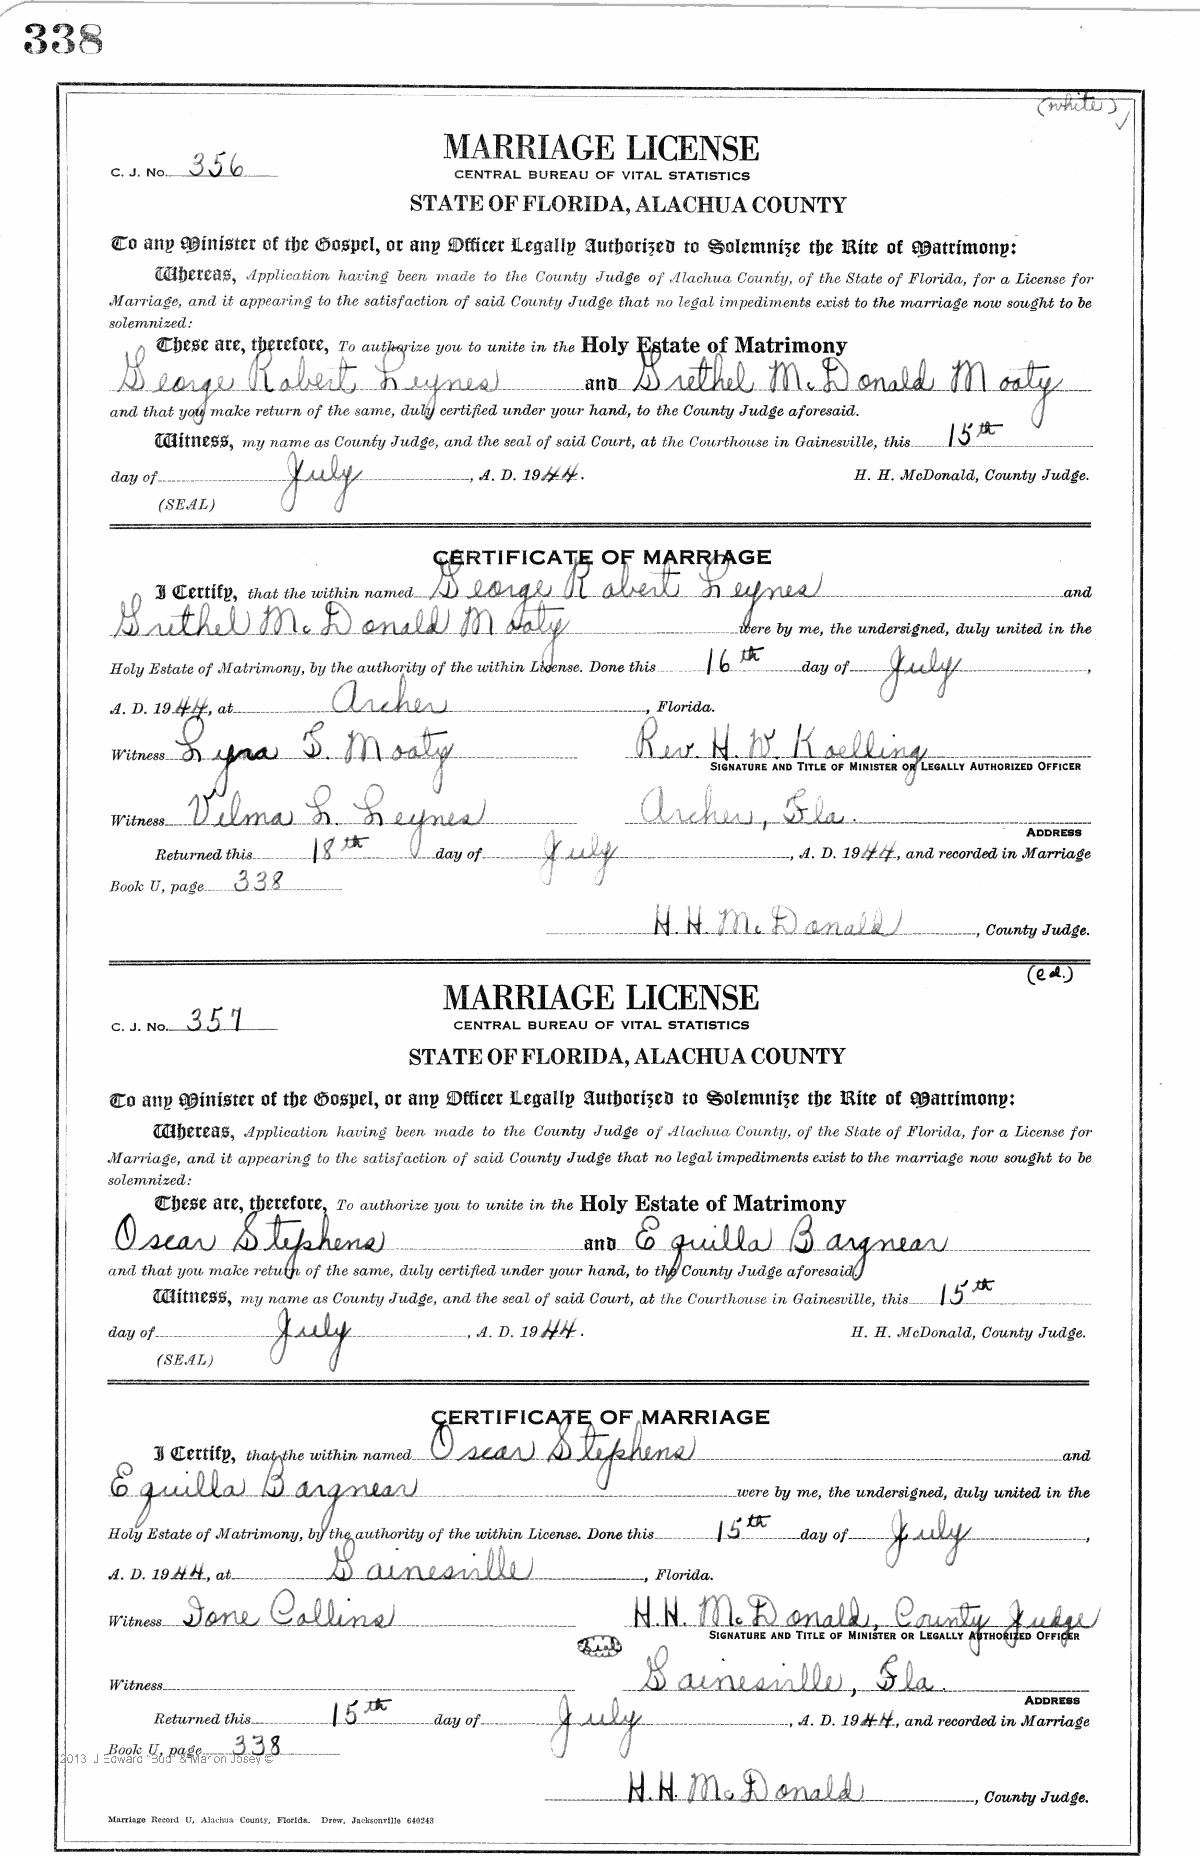 338
(white) ✓
MARRIAGE LICENSE
C. J. No. 356
CENTRAL BUREAU OF VITAL STATISTICS
STATE OF FLORIDA, ALACHUA COUNTY
To any Minister of the Gospel, or any Officer Legally Authorized to Solemnize the Rite of Matrimony:
Whereas, Application having been made to the County Judge of Alachua County, of the State of Florida, for a License for
Marriage, and it appearing to the satisfaction of said County Judge that no legal impediments exist to the marriage now sought to be
solemnized:
These are, therefore, To authorize you to unite in the Holy Estate of Matrimony
George Robert Leynes and Grethel McDonald Mooty
and that you make return of the same, duly certified under your hand, to the County Judge aforesaid.
Witness, my name as County Judge, and the seal of said Court, at the Courthouse in Gainesville, this 15th
day of July, A. D. 1944. H. H. McDonald, County Judge.
(SEAL)
CERTIFICATE OF MARRIAGE
I Certify, that the within named George Robert Leynes and
Grethel McDonald Mooty were by me, the undersigned, duly united in the
Holy Estate of Matrimony, by the authority of the within License. Done this 16th day of July,
A. D. 1944, at Archer, Florida.
Witness Lyra T. Mooty Rev. H. W. Koelling
SIGNATURE AND TITLE OF MINISTER OR LEGALLY AUTHORIZED OFFICER
Witness Vilma L. Leynes Archer, Fla.
ADDRESS
Returned this 18th day of July, A. D. 1944, and recorded in Marriage
Book U, page 338
H. H. McDonald, County Judge.
(cd.)
MARRIAGE LICENSE
C. J. No. 357
CENTRAL BUREAU OF VITAL STATISTICS
STATE OF FLORIDA, ALACHUA COUNTY
To any Minister of the Gospel, or any Officer Legally Authorized to Solemnize the Rite of Matrimony:
Whereas, Application having been made to the County Judge of Alachua County, of the State of Florida, for a License for
Marriage, and it appearing to the satisfaction of said County Judge that no legal impediments exist to the marriage now sought to be
solemnized:
These are, therefore, To authorize you to unite in the Holy Estate of Matrimony
Oscar Stephens and Equilla Bargnear
and that you make return of the same, duly certified under your hand, to the County Judge aforesaid.
Witness, my name as County Judge, and the seal of said Court, at the Courthouse in Gainesville, this 15th
day of July, A. D. 1944. H. H. McDonald, County Judge.
(SEAL)
CERTIFICATE OF MARRIAGE
I Certify, that the within named Oscar Stephens and
Equilla Bargnear were by me, the undersigned, duly united in the
Holy Estate of Matrimony, by the authority of the within License. Done this 15th day of July,
A. D. 1944, at Gainesville, Florida.
Witness Ione Collins H. H. McDonald, County Judge
SIGNATURE AND TITLE OF MINISTER OR LEGALLY AUTHORIZED OFFICER
Seal
Witness Gainesville, Fla.
ADDRESS
Returned this 15th day of July, A. D. 1944, and recorded in Marriage
Book U, page 338
2013 J Edward "Bud" & Marion Josey ©
H. H. McDonald, County Judge.
Marriage Record U, Alachua County, Florida. Drew, Jacksonville 640243